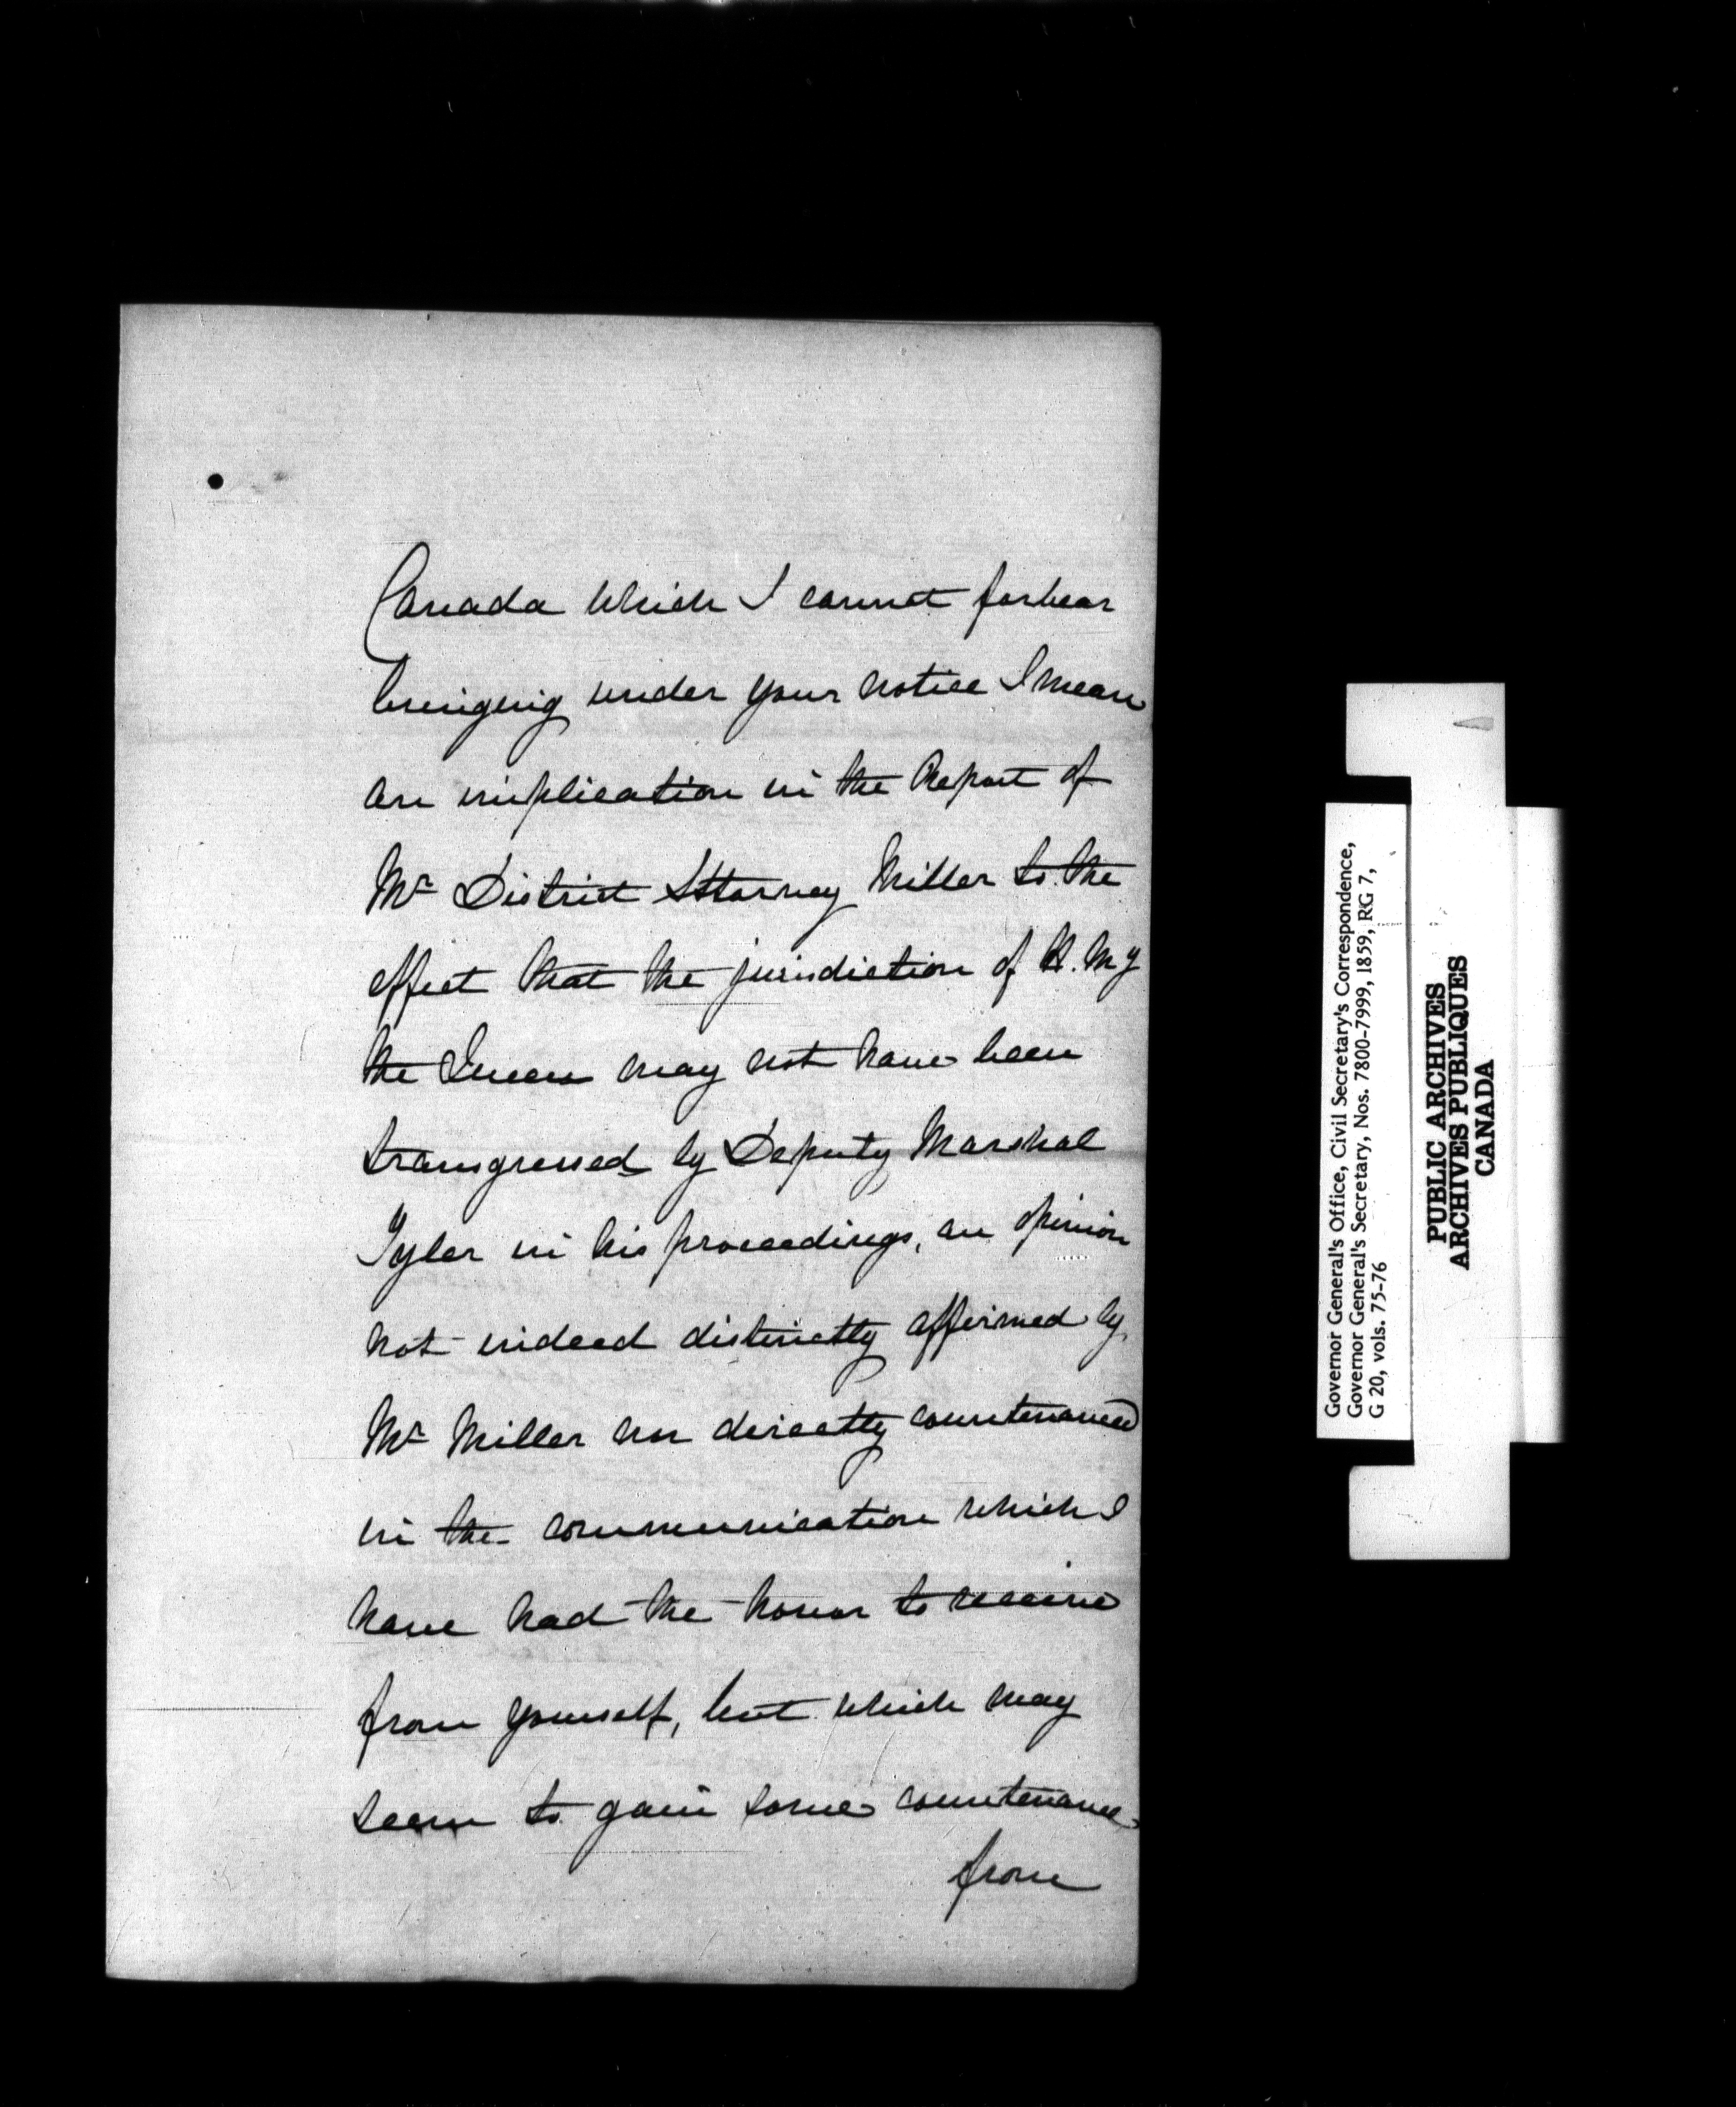 Canada which I cannot forbear
bringing under your notice I mean
an implication in the Report of
Mr District Attorney Miller to the
effect that the jurisdiction of H. My
the Queen may not have been
transgressed by Deputy Marshal
Tyler in his proceedings, an opinion
not indeed distinctly affirmed by
Mr Miller nor directly countenanced
in the communication which I
have had the honor to receive
from yourself, but which may
seem to gain some countenance
from
Governor General's Office, Civil Secretary's Correspondence,
Governor General's Secretary, Nos. 7800-7999, 1859, RG 7,
G 20, vols. 75-76
PUBLIC ARCHIVES
ARCHIVES PUBLIQUES
CANADA